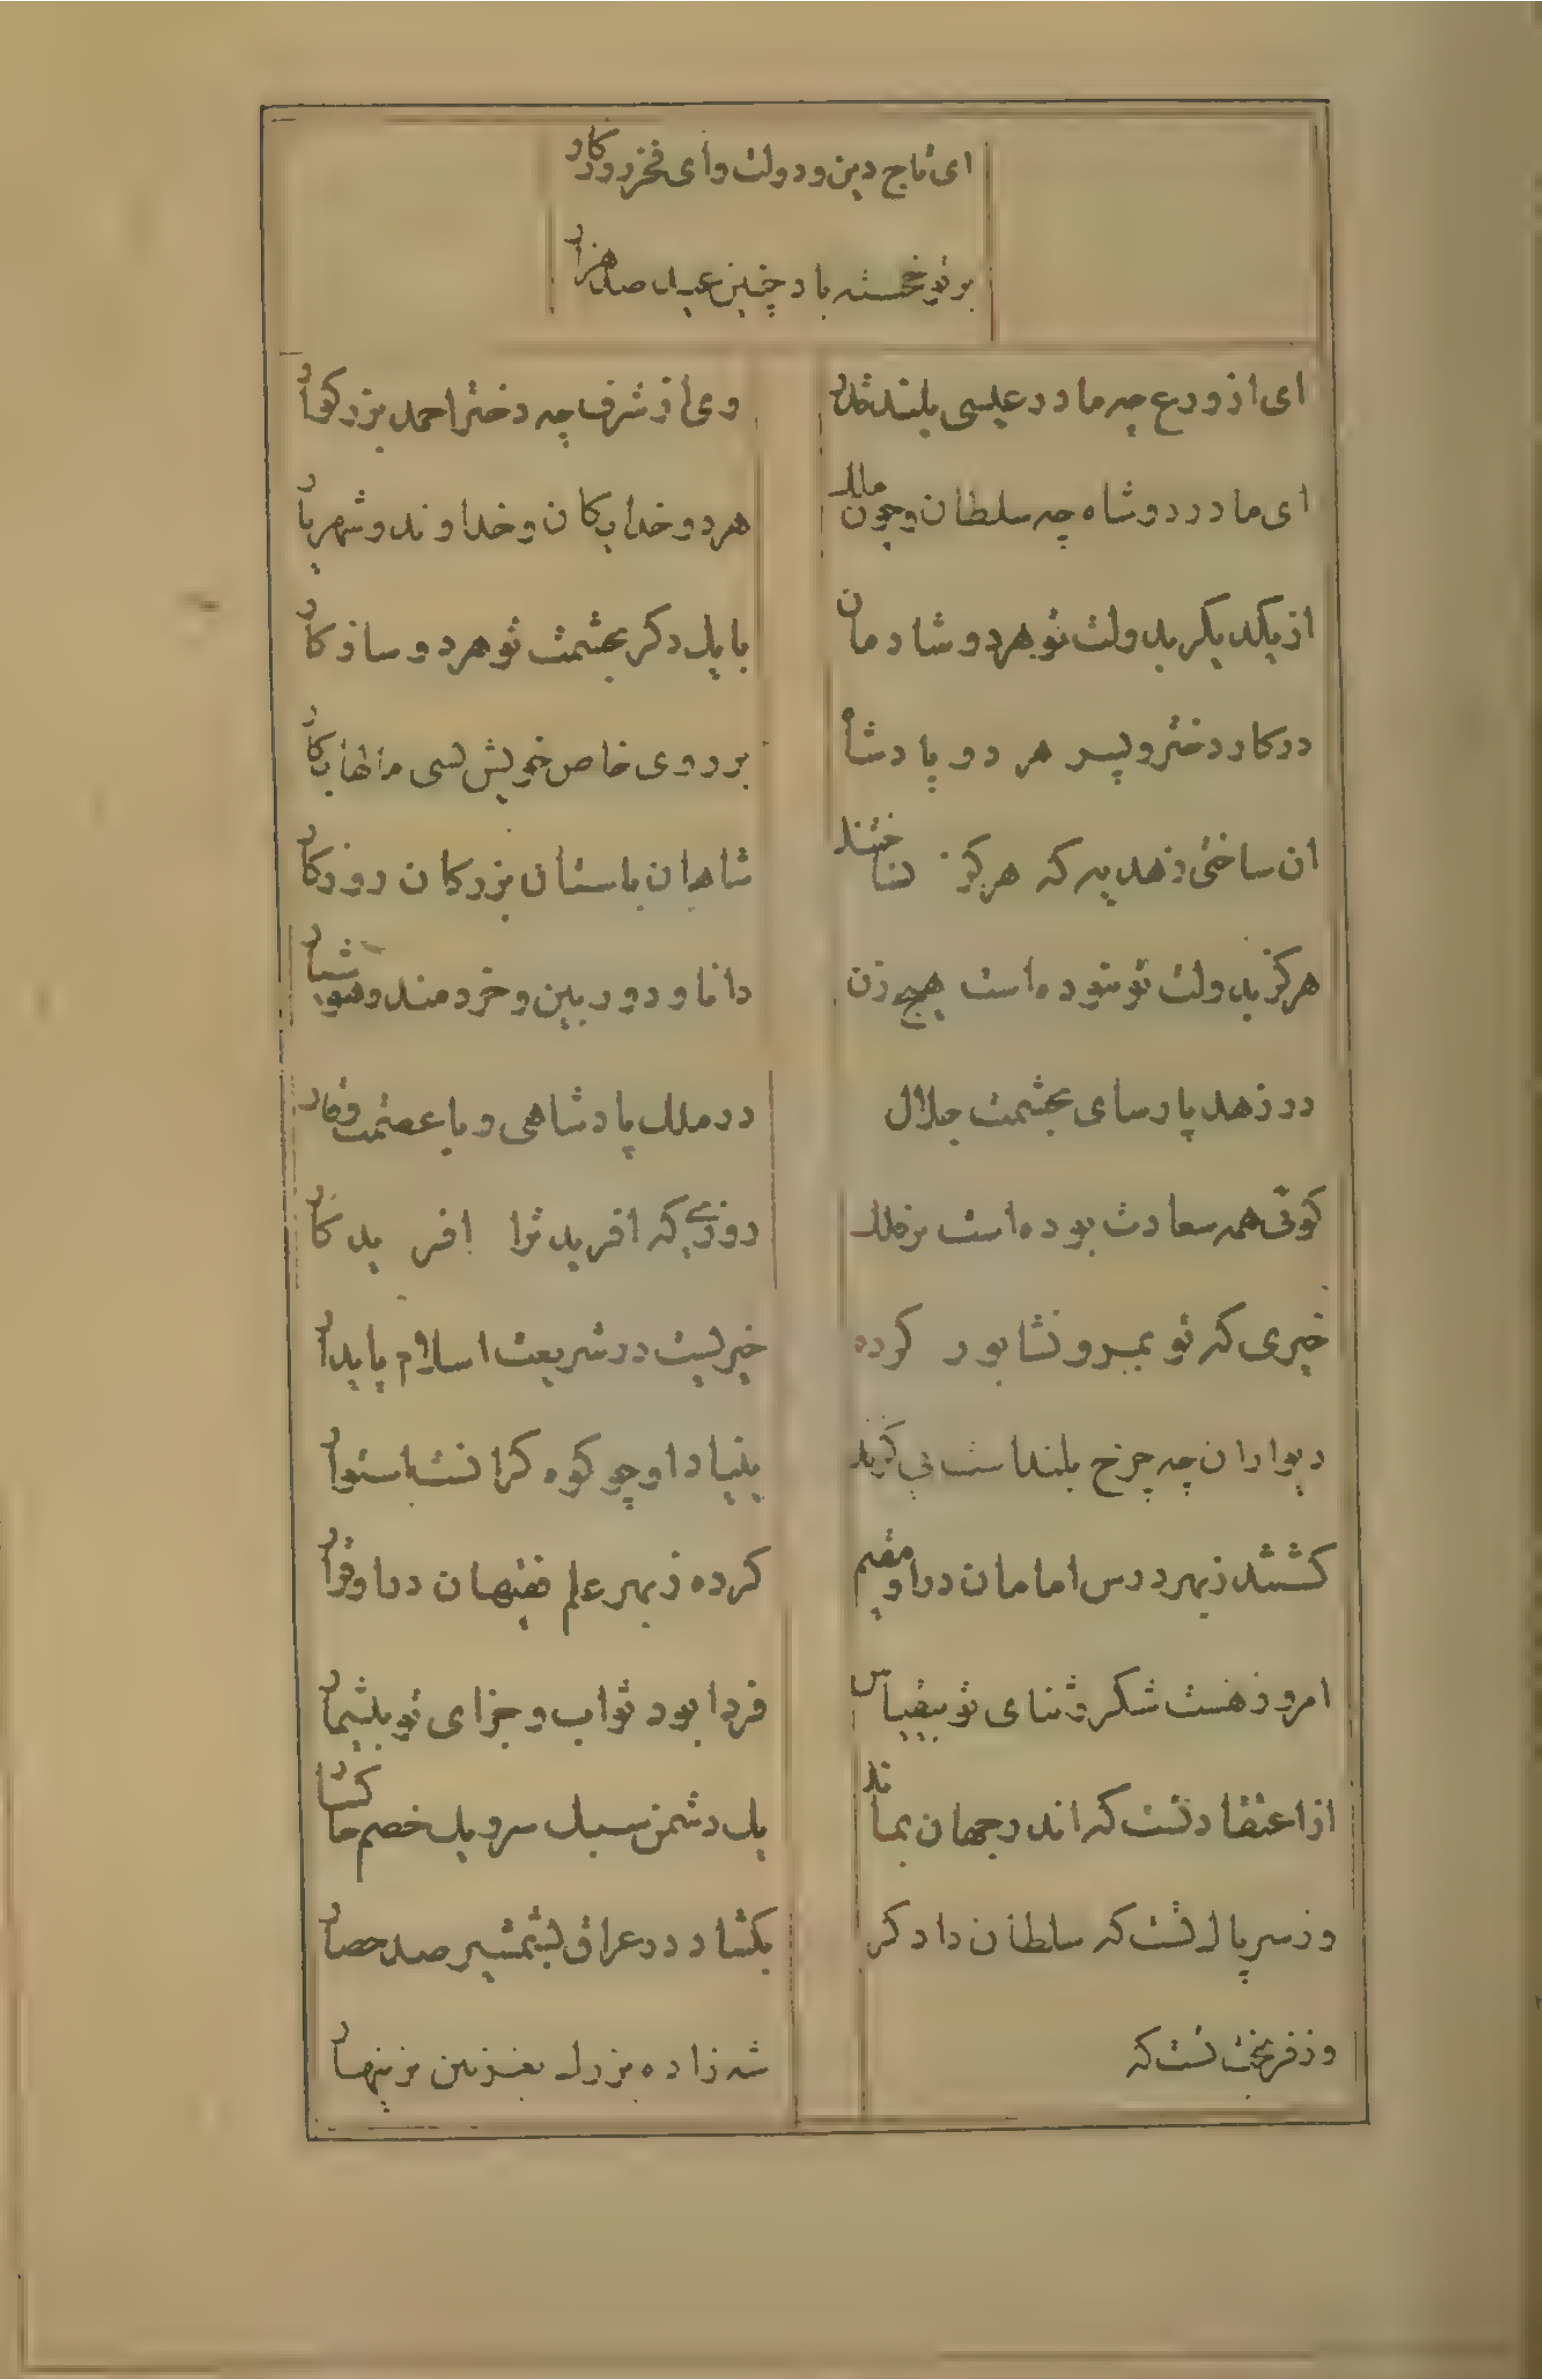 ای تاج دین و دولت وای فخر روزکار
بر تو خجسته باد چنین عید صد هزار
ای از ورع چه مادر عیسی بلند قدر
وی از شرف چه دختر احمد بزرکوار
ای مادر دو شاه چه سلطان و چون ملک
هر دو خدایکان و خداوند و شهریار
از یکدیکر بدولت تو هر دو شادمان
با یک دکر بحشمت تو هر دو سازکار
در کار دختر و پسر هر دو پادشاه
بر روی خاص خویش بسی
ان ساختی زهدیه که هرکز نساختند
شاهان باستان بزرکان روزکار
هرکز بدولت تو نبوده است هیچ زن
دانا و دوربین و خردمند و هوشیار
در زهد پارسای بحشمت جلال
در ملک پادشاهی و با عصمت وقار
کوئی همه سعادت بوده است بر فلک
روزی که افرید ترا افریدکار
خیری که تو بمرو نشابور کرده
خیریست در شریعت اسلام پایدار
دیوار ان چه چرخ بلنداست بی کزند
بنیاد او چو کوه کرانست استوار
کشتند زبهر درس امامان درو مقیم
کرده زبهر علم فقیهان درو قرار
امروز هست شکر و ثنای تو بیقیاس
فردا بود ثواب و جزای تو بیشمار
از اعتقاد تست که اندر جهان بماند
یک دشمن سبک سر و یک خصم خاکسار
وز سر پاک تست که سلطان دادکر
بکشاد در عراق بشمشیر صد حصار
وز فر بخت تست که
شه زاده بزرک بغزنین بزینهار